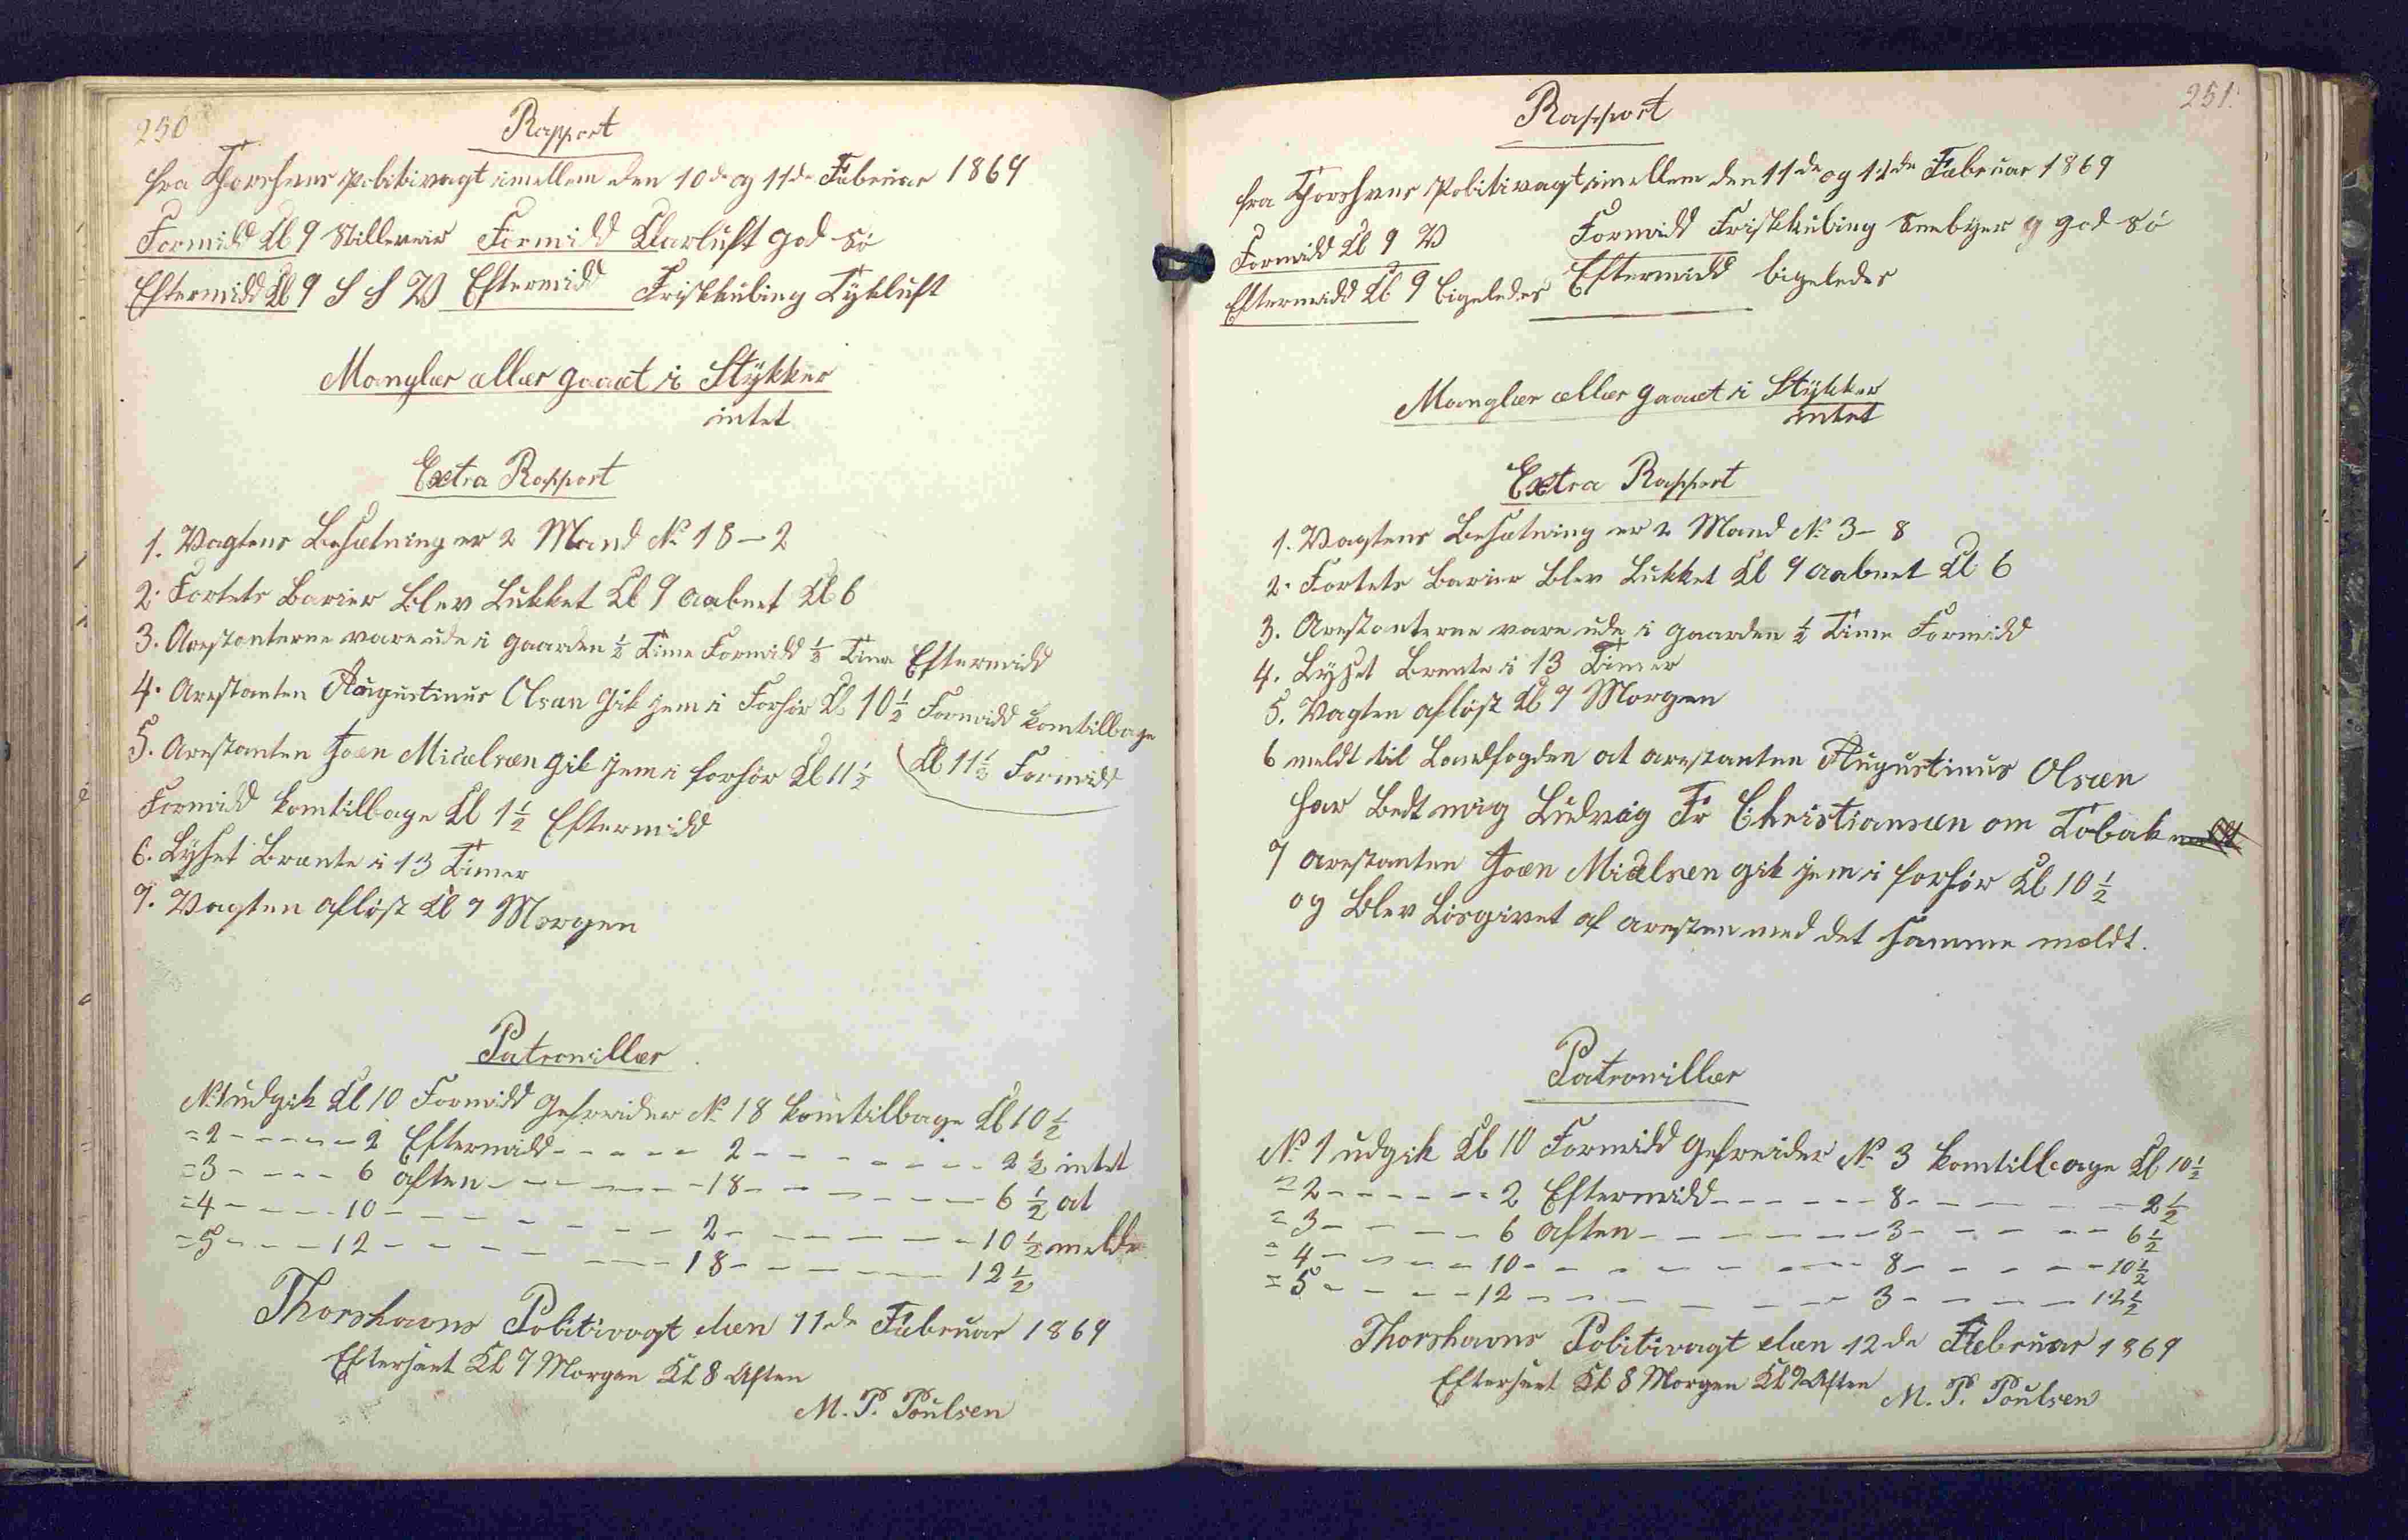 250
Rapport
fra Thorshvns Politivagt imellem den 10de og 11de Februar 1869
Formidd Kl 9 Stilleveir Formidd Klarluft god Sö
Eftermidd Kl 9 S S W Eftermidd Friskkuling Tykluft
Manglar ællær gaaet i Stykker
intet
Extra Rapport
1. Vagtens Besætning er 2 Mand No 18 – 2
2. Fortets Barier Blev Lukket Kl 9 aabnet Kl 6
3. Arestanterne vare ude i gaarden ½ Time Formidd ½ Time Eftermidd
4. Arestanten Augustinus Olsæn gik hjem i Forhör Kl 10½ Formidd komtilbage
Kl 11½ Formidd
5. Arestanten Joæn Micælsæn gik hjem i forhör Kl 11½
Formidd komtilbage Kl 1½ Eftermidd
6. Lyset Brænte i 13 Timer
7. Vagten aflöst Kl 7 Morgen
Patroniller
No 1 udgik Kl 10 Formidd Gefreider No 18 komtilbage Kl 10½
=2 - - - - - 2 Eftermidd - - - - - 2 - - - - - - 2½ intet
=3 - - - - 6 aften - - - - - - 18 - - - - - - 6½ at
=4 - - - - 10 - - - - - - - - 2 - - - - - - 10½ melde
=5 - - - - 12 - - - - - - - - 18 - - - - - - 12½
Thorshavns Politivagt den 11de Februar 1869
Eftersæet Kl 7 Morgen Kl 8 Aften
M. P. Poulsen
251.
Rapport
fra Thorshvns Politivagt imellem den 11de og 12de Februar 1869
Formidd Kl 9 W Formidd Friskkuling Sneebyer og god Sö
Eftermidd Kl 9 ligeledes Eftermidd ligeledes
Manglær ællær gaaet i Stykker
intet
Extra Rapport
1. Vagtens Besætning er 2 Mand No 3 – 8
2. Fortets Barier Blev Lukket Kl 9 aabnet Kl 6
3. Arestanterne vare ude i gaarden ½ Time Formidd
4. Lyset Brente i 13 Timer
5. Vagten aflöst Kl 7 Morgen
6 meldt til Landfogden at arestanten Augustinus Olsæn
har Bedt mig Ludvig Fr Christiansæn om Tobak
7 arestanten Joæn Micælsæn gik hjem i forhör Kl 10½
og Blev Lösgivet af aresten med det samme mældt.
Patroniller
No 1 udgik Kl 10 Formidd Gefreider No 3 komtilbage Kl 10½
=2 - - - - - 2 Eftermidd - - - - - 8 - - - - - 2½
=3 - - - - - 6 aften - - - - - - 3 - - - - - 6½
=4 - - - - - 10 - - - - - - - 8 - - - - - 10½
=5 - - - - - 12 - - - - - - - 3 - - - - - 12½
Thorshavns Politivagt den 12de Februar 1869
Eftersæet Kl 8 Morgen Kl 9 Aften
M. P. Poulsen